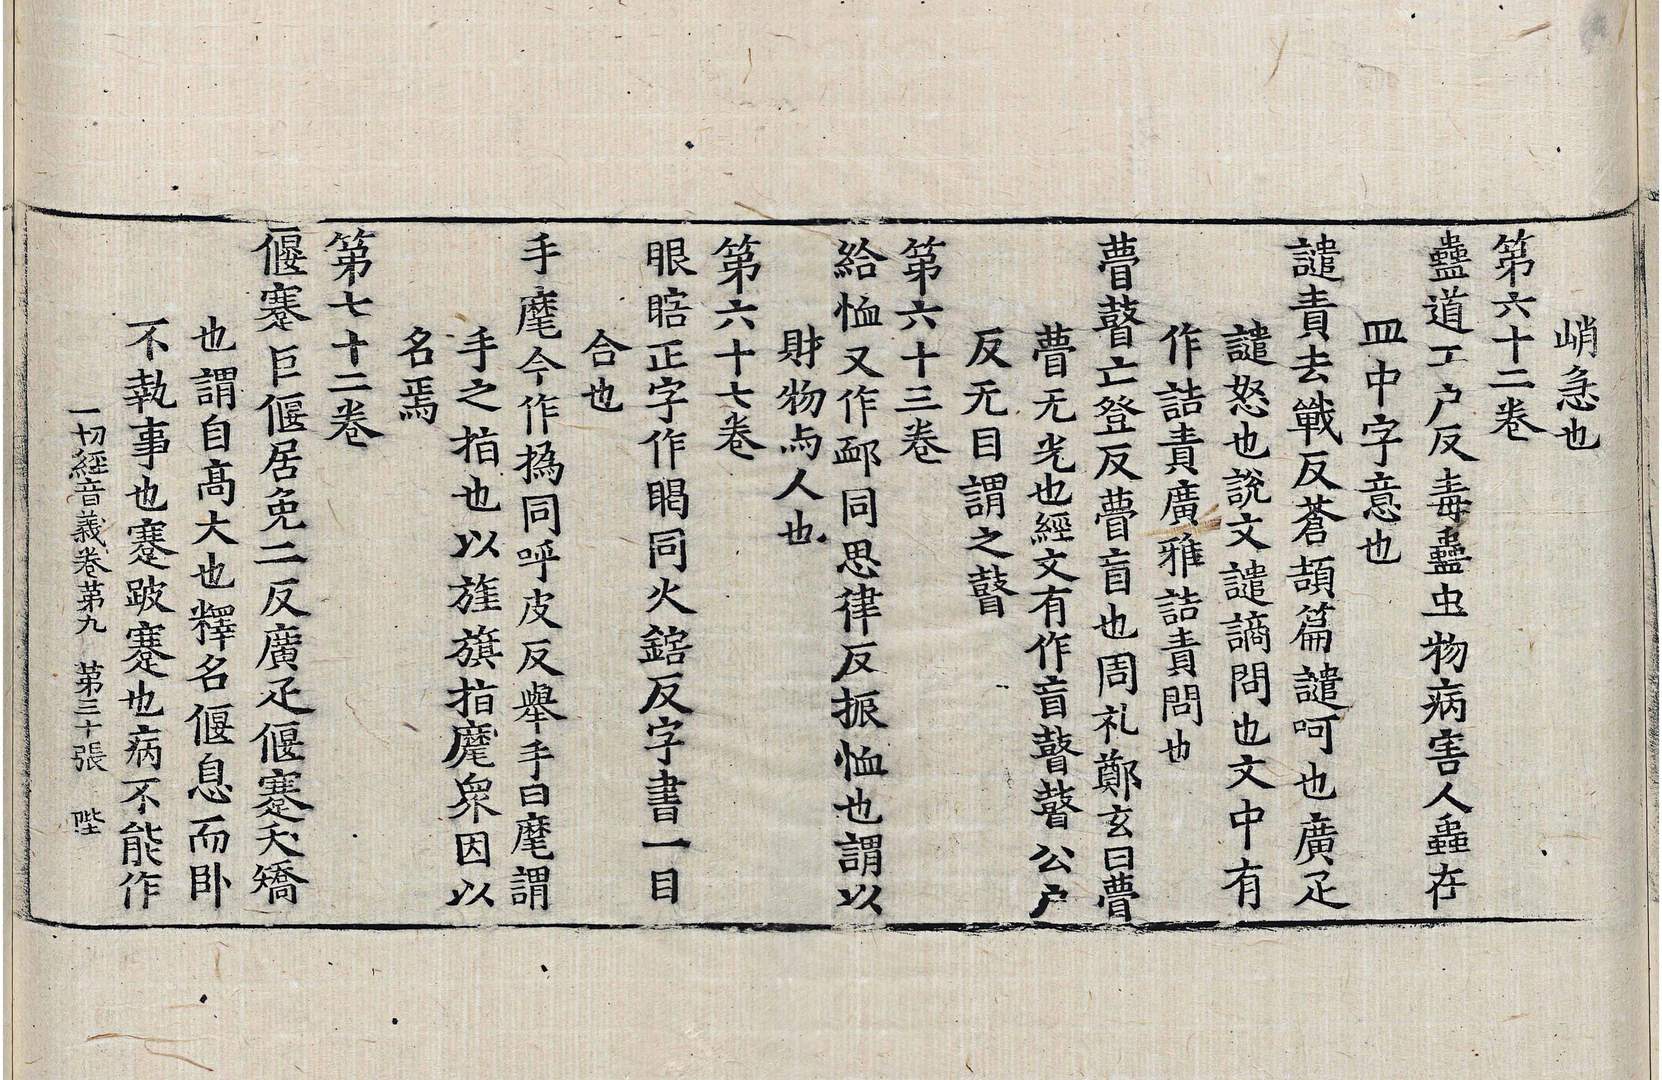 峭急也
第六十二卷
蠱道工户反毒蠱虫物病害人蟲在
皿中字意也
譴責去戰反蒼頡篇譴呵也廣疋
譴怒也說文譴謫問也文中有
作詰責廣雅詰責問也
瞢瞽亡登反瞢盲也周礼鄭玄曰瞢
瞢无光也經文有作盲瞽瞽公户
反无目謂之瞽
第六十三卷
給恤又作䘏同思律反振恤也謂以
財物与人也
第六十七卷
眼瞎正字作𥈭同火鎋反字書一目
合也
手麾今作撝同呼皮反舉手曰麾謂
手之指也以旌旗指麾衆因以
名焉
第七十二卷
偃蹇巨偃居免二反廣疋偃蹇夭矯
也謂自髙大也釋名偃息而卧
不執事也蹇跛蹇也病不能作
一切經音義卷苐九 苐三十張 陛